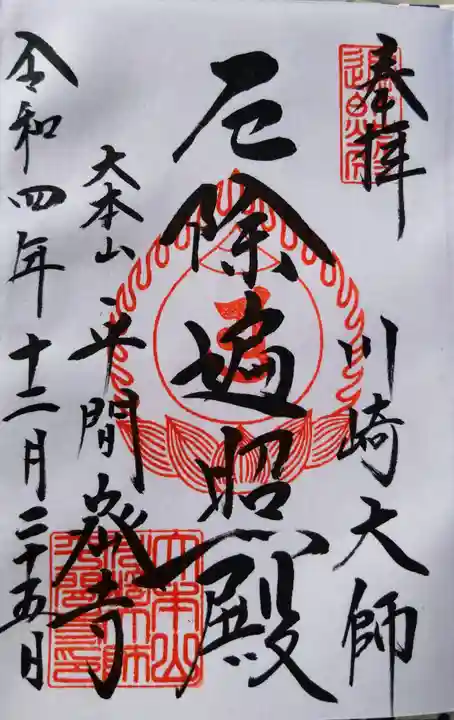 奉拝
川崎大師
厄除遍照殿
大本山平間寺
令和四年十二月二十五日